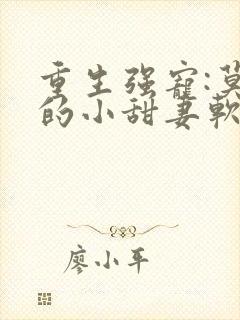 重生强寵:莫
的小甜妻軟
廖小平